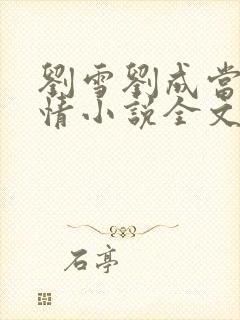 劉雪劉成當
情小說全文
石亭